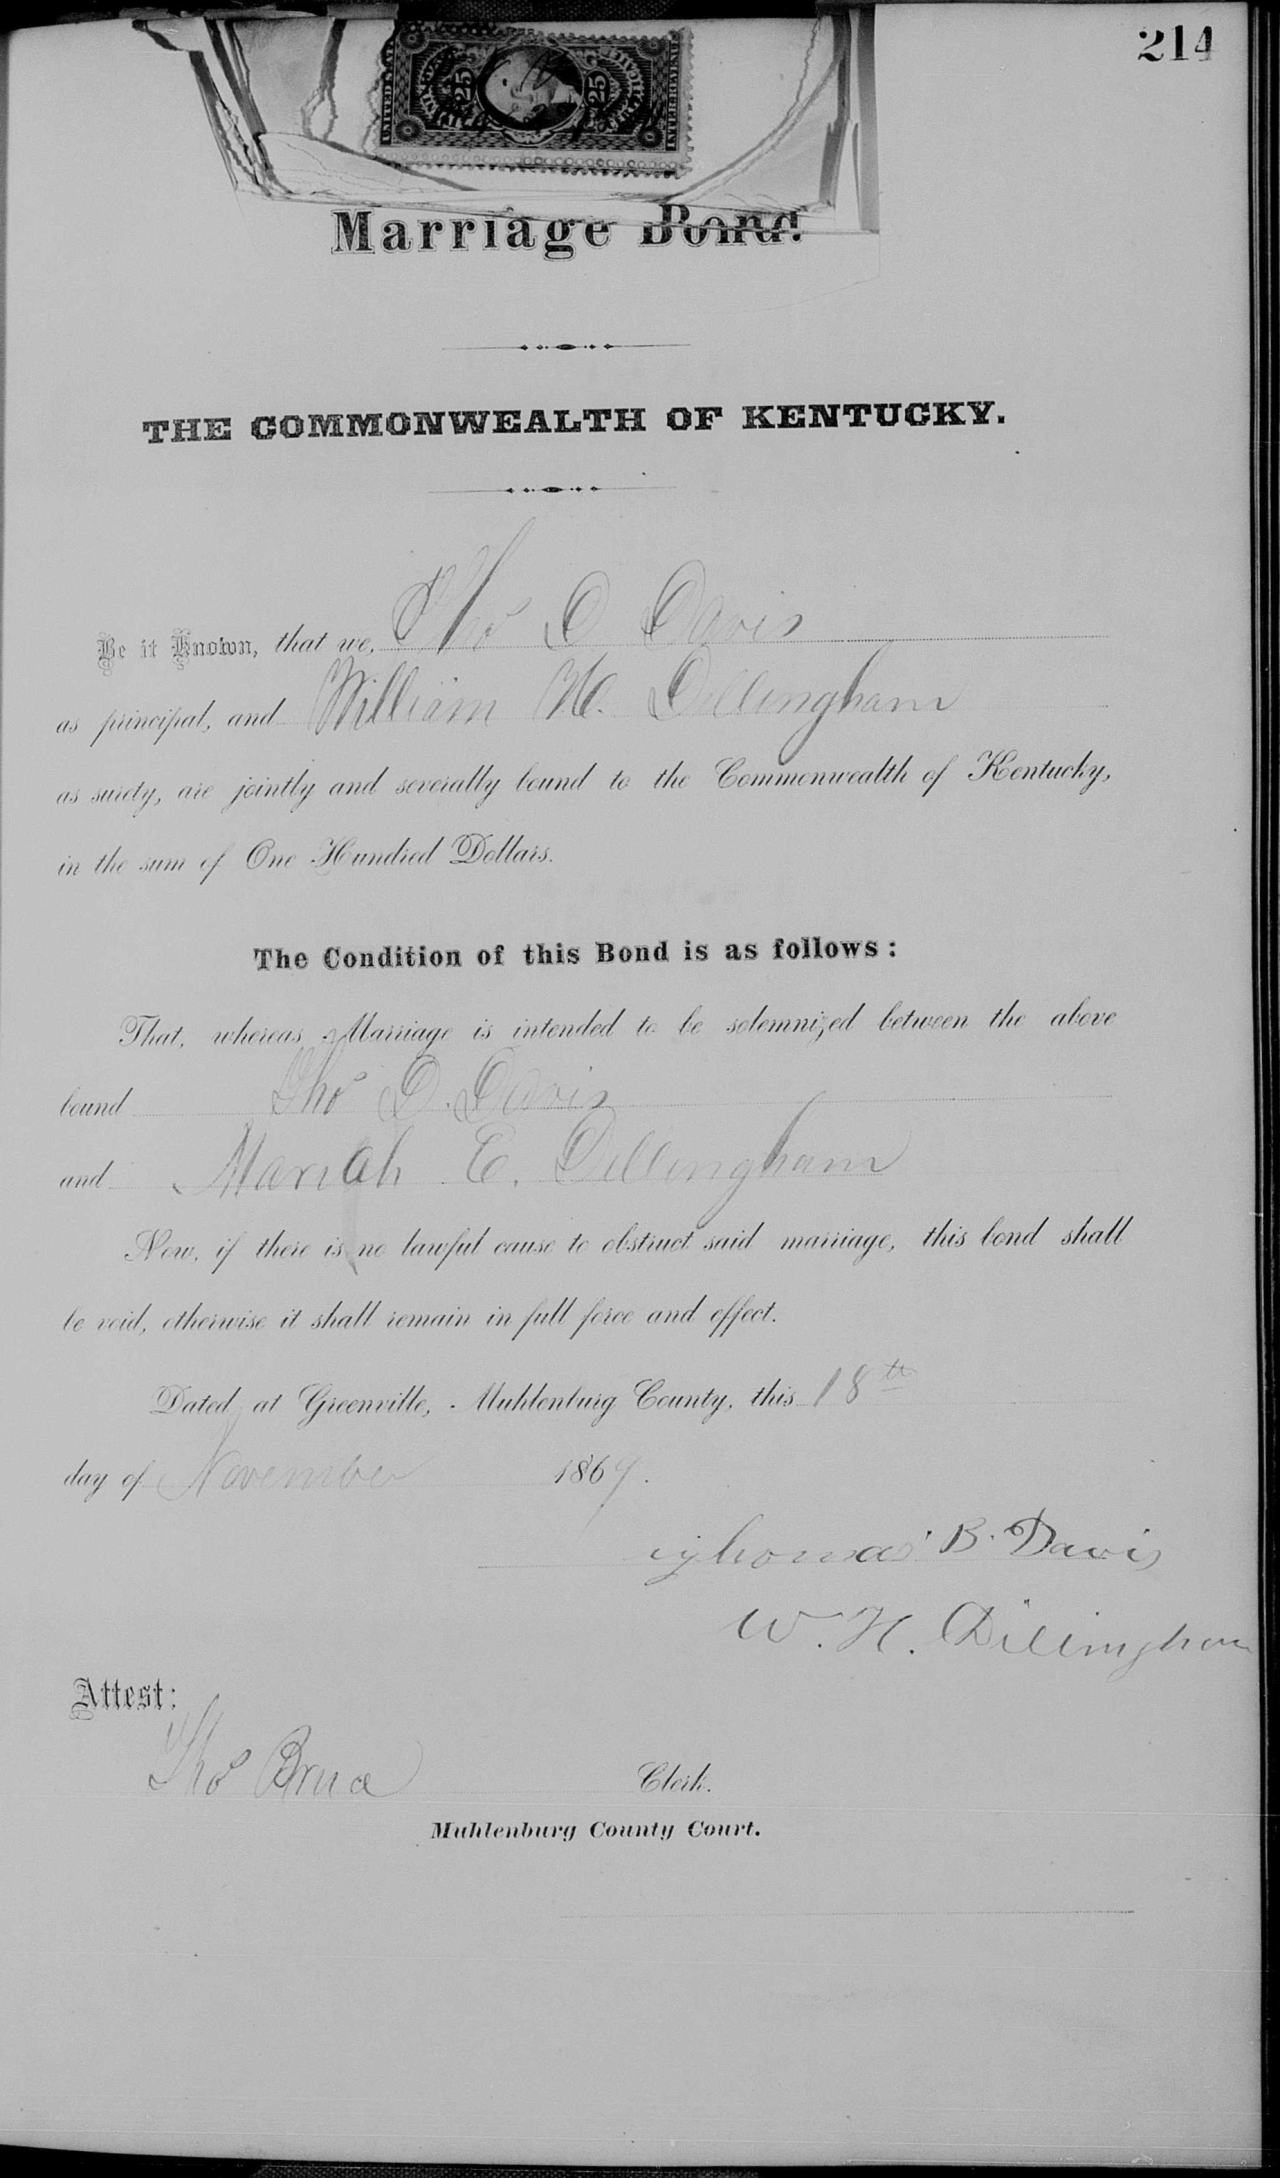 214
UNITED STATES
25 25
Marriage Bond.
THE COMMONWEALTH OF KENTUCKY.
Be it Known, that we, Thos D Davis
as principal, and William H. Dillingham
as surety, are jointly and severally bound to the Commonwealth of Kentucky,
in the sum of One Hundred Dollars.
The Condition of this Bond is as follows:
That, whereas Marriage is intended to be solemnized between the above
bound Thos D. Davis
and Mariah E. Dillingham
Now, if there is no lawful cause to obstruct said marriage, this bond shall
be void, otherwise it shall remain in full force and effect.
Dated at Greenville, Muhlenburg County, this 18th
day of November 1867.
Thomas B. Davis
W. H. Dillingham
Attest:
Thos Bruce Clerk.
Muhlenburg County Court.